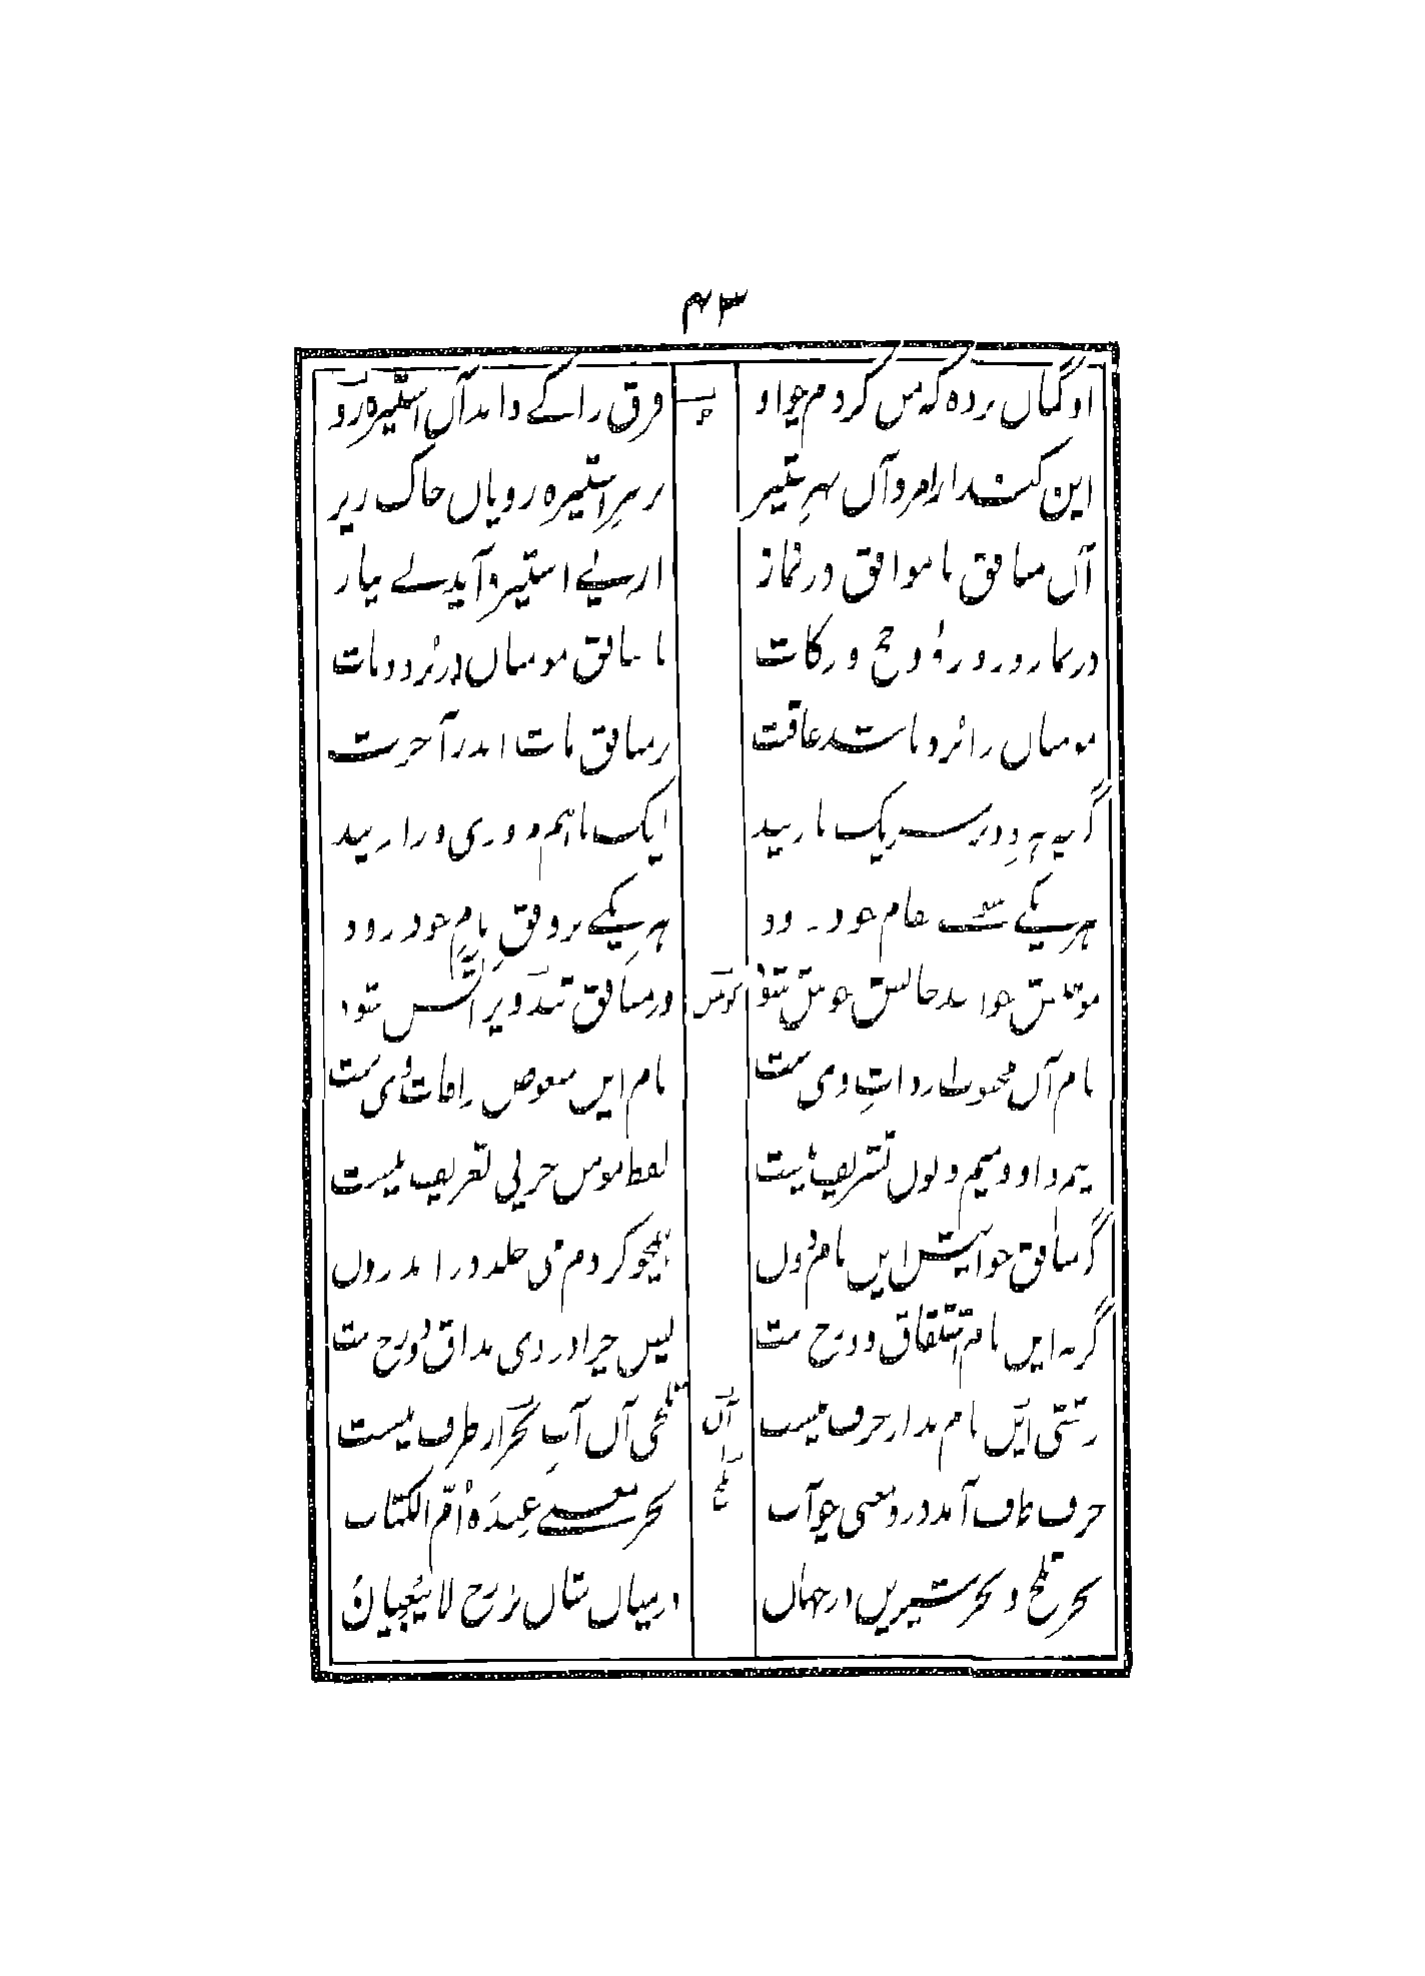 ۴۳
او گماں بردہ کہ من کردم چو او
فرق را کے داند آں استیزہ رو
ایں کند از امر و آں بہرِ ستیز
بر سرِ استیزہ رویاں خاک ریز
آں منافق با موافق در نماز
از پے استیزہ آید نے نیاز
در نماز و روزہ و حج و زکات
با منافق مومناں در برد و مات
مومناں را برد باشد عاقبت
بر منافق مات اندر آخرت
گرچہ ہر دو بر سر یک بازیند
لیک با ہم مروزی و رازیند
ہر یکے سوے مقام خود رود
ہر یکے بر وفقِ نامِ خود رود
مومنش خوانند جانش خوش شود
ور منافق تند و پر آتش شود
نام آں محبوب از ذاتِ وی ست
نام ایں مبغوض ز آفات وی ست
میم و واو و میم و نون تشریف نیست
لفظ مومن جز پی تعریف نیست
گر منافق خوانیش ایں نام دوں
ہمچو کژدم می خلد در اندروں
گرنہ ایں نام اشتقاق دوزخ ست
پس چرا در وی مذاق دوزخ ست
زشتی ایں نام بد از حرف نیست
تلخی آں آبِ بحر از ظرف نیست
حرف ظرف آمد درو معنی چو آب
بحر معنے عِندَہٗ اُمّ الکتاب
بحر تلخ و بحر شیریں در جہاں
درمیاں شاں برزخ لا یَبْغِیانْ